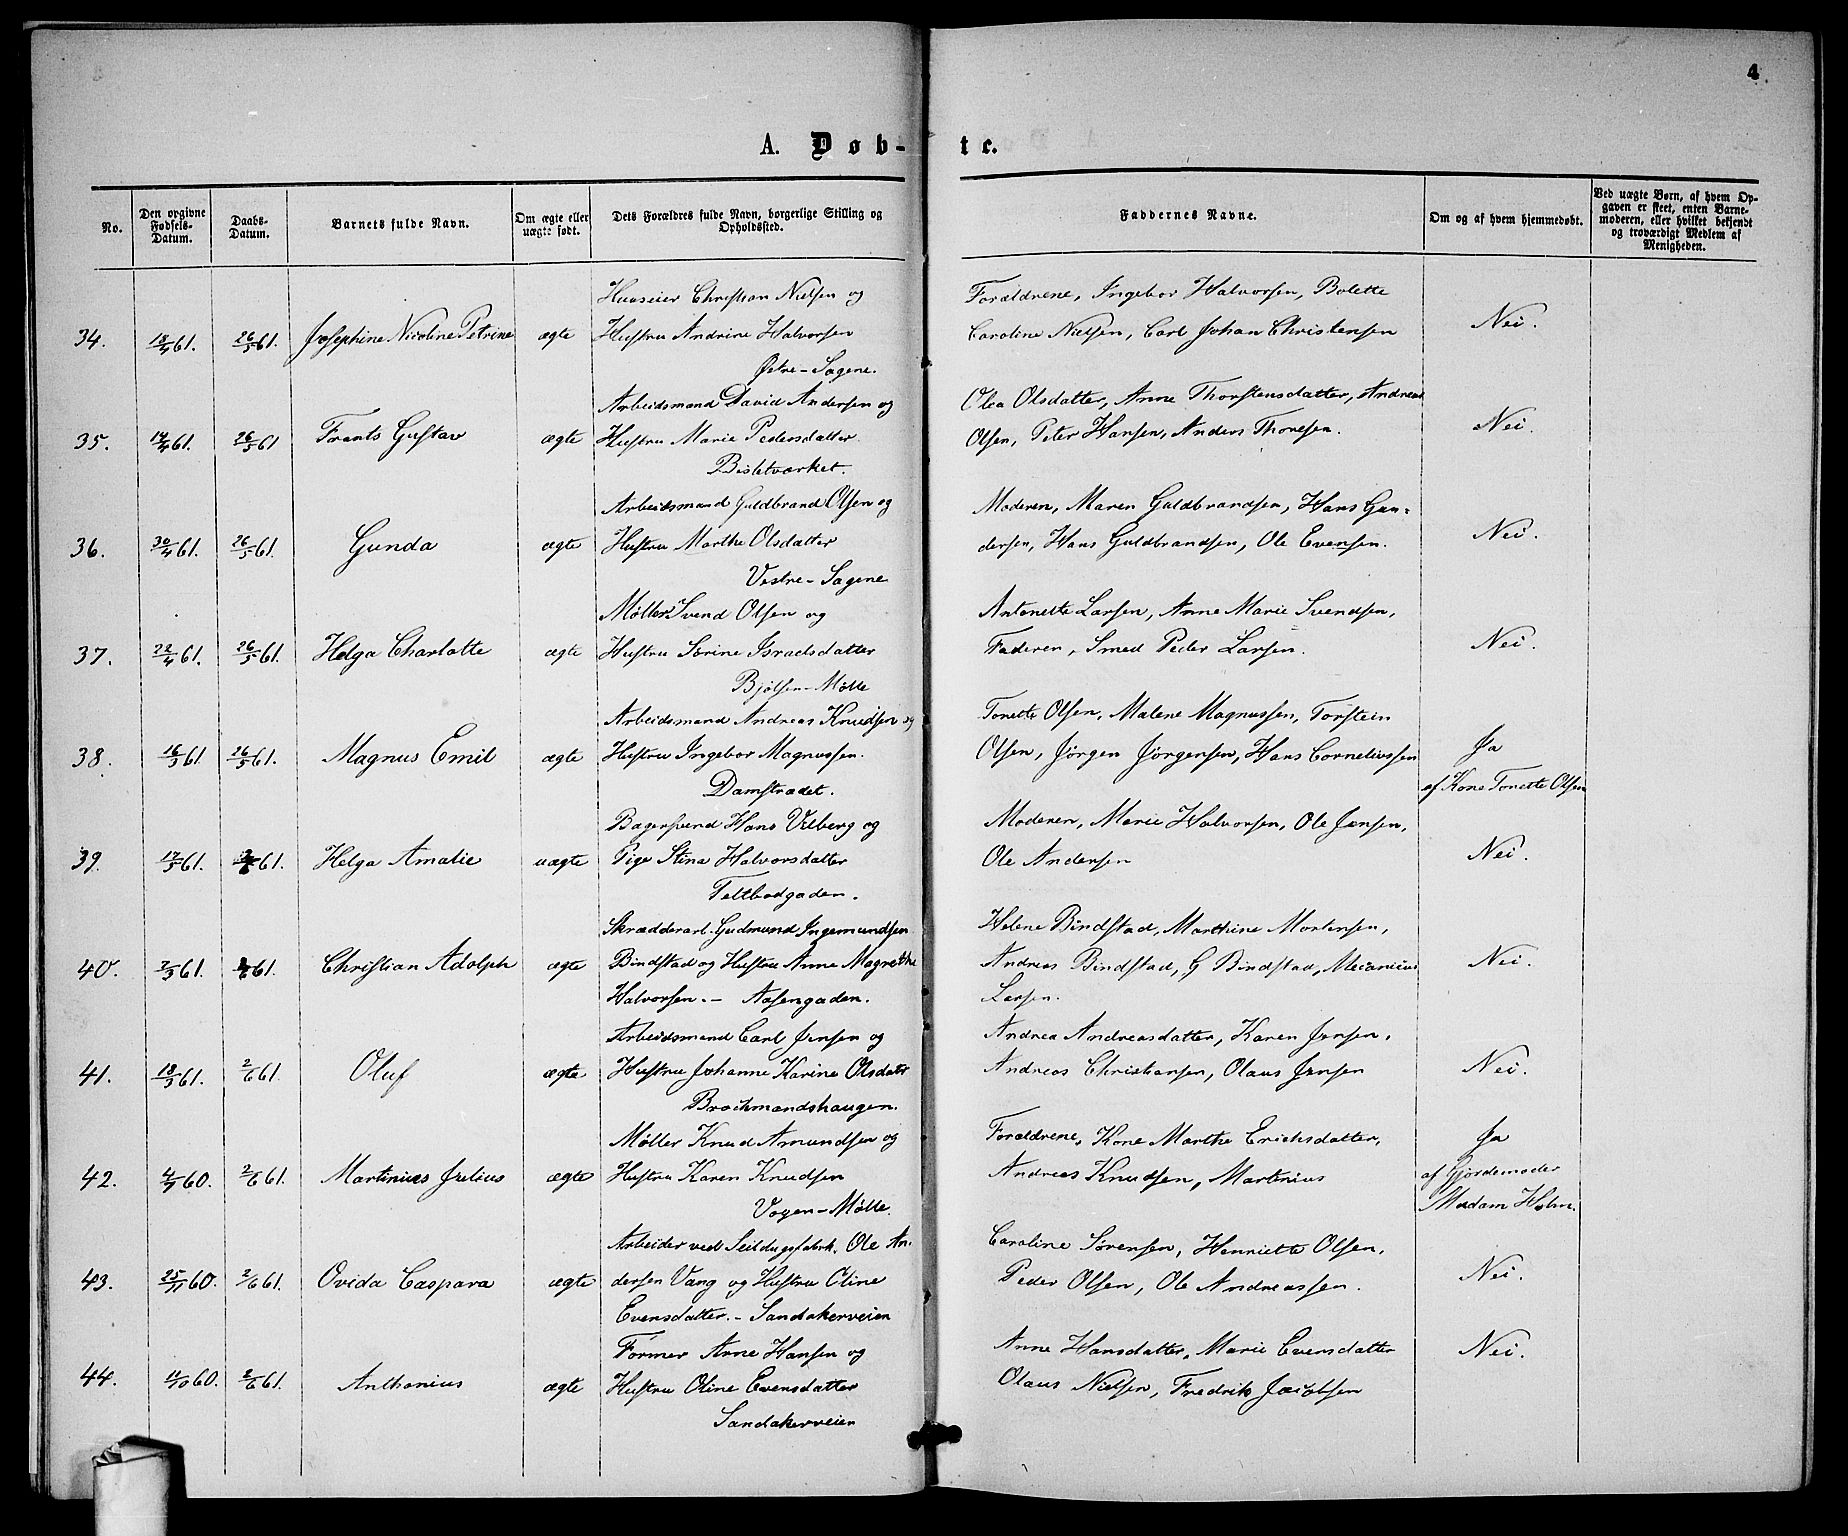 4.
A. Døb-te.
No.
Den opgivne Fødsels-Datum.
Daabs-Datum.
Barnets fulde Navn.
Om ægte eller uægte født.
Dets Forældres fulde Navn, borgerlige Stilling og Opholdssted.
Faddernes Navne.
Om og af hvem hjemmedøbt.
Ved uægte Børn, af hvem Opgaven er skeet, enten Barnemoderen, eller hvilket bekjendt og troværdigt Medlem af Menigheden.
Huuseier Christian Nielsen og
Forældrene, Ingebor Halvorsen, Bolette
34. 18/4 61. 26/5 61. Josephine Nicoline Petrine ægte Hustru Andrine Halvorsen
Caroline Nielsen, Carl Johan Christensen Nei.
Østre-Sagene.
Arbeidsmand David Andersen og
Olea Olsdatter, Anne Thorstensdatter, Andreas
35. 14/4 61. 26/5 61 Frants Gustav ægte Hustru Marie Pedersdatter
Olsen, Peter Hansen, Anders Thoresen. Nei.
Bisletværket.
Arbeidsmand Guldbrand Olsen og
Moderen, Maren Guldbrandsen, Hans Gun-
36. 30/4 61. 26/5 61. Gunda ægte Hustru Marthe Olsdatter
dersen, Hans Guldbrandsen, Ole Evensen. Nei.
Vestre-Sagene
Møller Svend Olsen og
Antonette Larsen, Anne Marie Svendsen,
37. 22/4 61. 26/5 61. Helga Charlotte ægte Hustru Sørine Israelsdatter
Faderen, Smed Peder Larsen. Nei.
Bjølsen-Mølle
Arbeidsmand Andreas Knudsen og
Tonette Olsen, Malene Magnussen, Torstein
38. 16/5 61 26/5 61. Magnus Emil ægte Hustru Ingebor Magnussen.
Olsen, Jørgen Jørgensen, Hans Corneliussen Ja
Damstrædet.
af Kone Tonette Olsen
Bagersvend Hans Vilberg og
Moderen, Marie Halvorsen, Ole Jensen,
39. 17/5 61. 61. Helga Amalie uægte Pige Stina Halvorsdatter
Ole Andersen Nei.
Feltbodgaden.
Skrædderarb. Gudmund Ingemundsen
Helene Bindstad, Marthine Mortensen,
40. 2/3 61. 61. Christian Adolph ægte Bindstad og Hustru Anne Magrethe
Andreas Bindstad, G Bindstad, Mecanicus Nei.
Halvorsen. - Aasengaden.
Larsen.
Arbeidsmand Carl Jensen og
Andrea Andreasdatter, Karen Jensen,
41. 18/3 61. 2/6 61. Oluf ægte Hustru Johanne Karine Olsdater
Andreas Christiansen, Olaus Jensen Nei.
Brochmandshaugen.
Møller Knud Amundsen og
Forældrene, Kone Marthe Erichsdatter, Ja
42. 4/9 60. 2/6 61. Martinius Julius ægte Hustru Karen Knudsen
Andreas Knudsen, Martinius af Gjordemoder
Vøyen-Mølle.
Madam Holm.
Arbeider ved Seildugsfabrk. Ole An-
Caroline Sørensen, Henriette Olsen,
43. 25/11 60. 2/6 61. Ovida Caspara ægte dersen Vang og Hustru Oline
Peder Olsen, Ole Andreassen. Nei.
Evensdatter. - Sandakerveien
Former Arne Hansen og
Anne Hansdatter, Marie Evensdatter Nei.
44. 11/10 60. 2/6 61. Anthonius ægte Hustru Oline Evensdatter
Olaus Nielsen, Fredrik Jacobsen
Sandakerveien